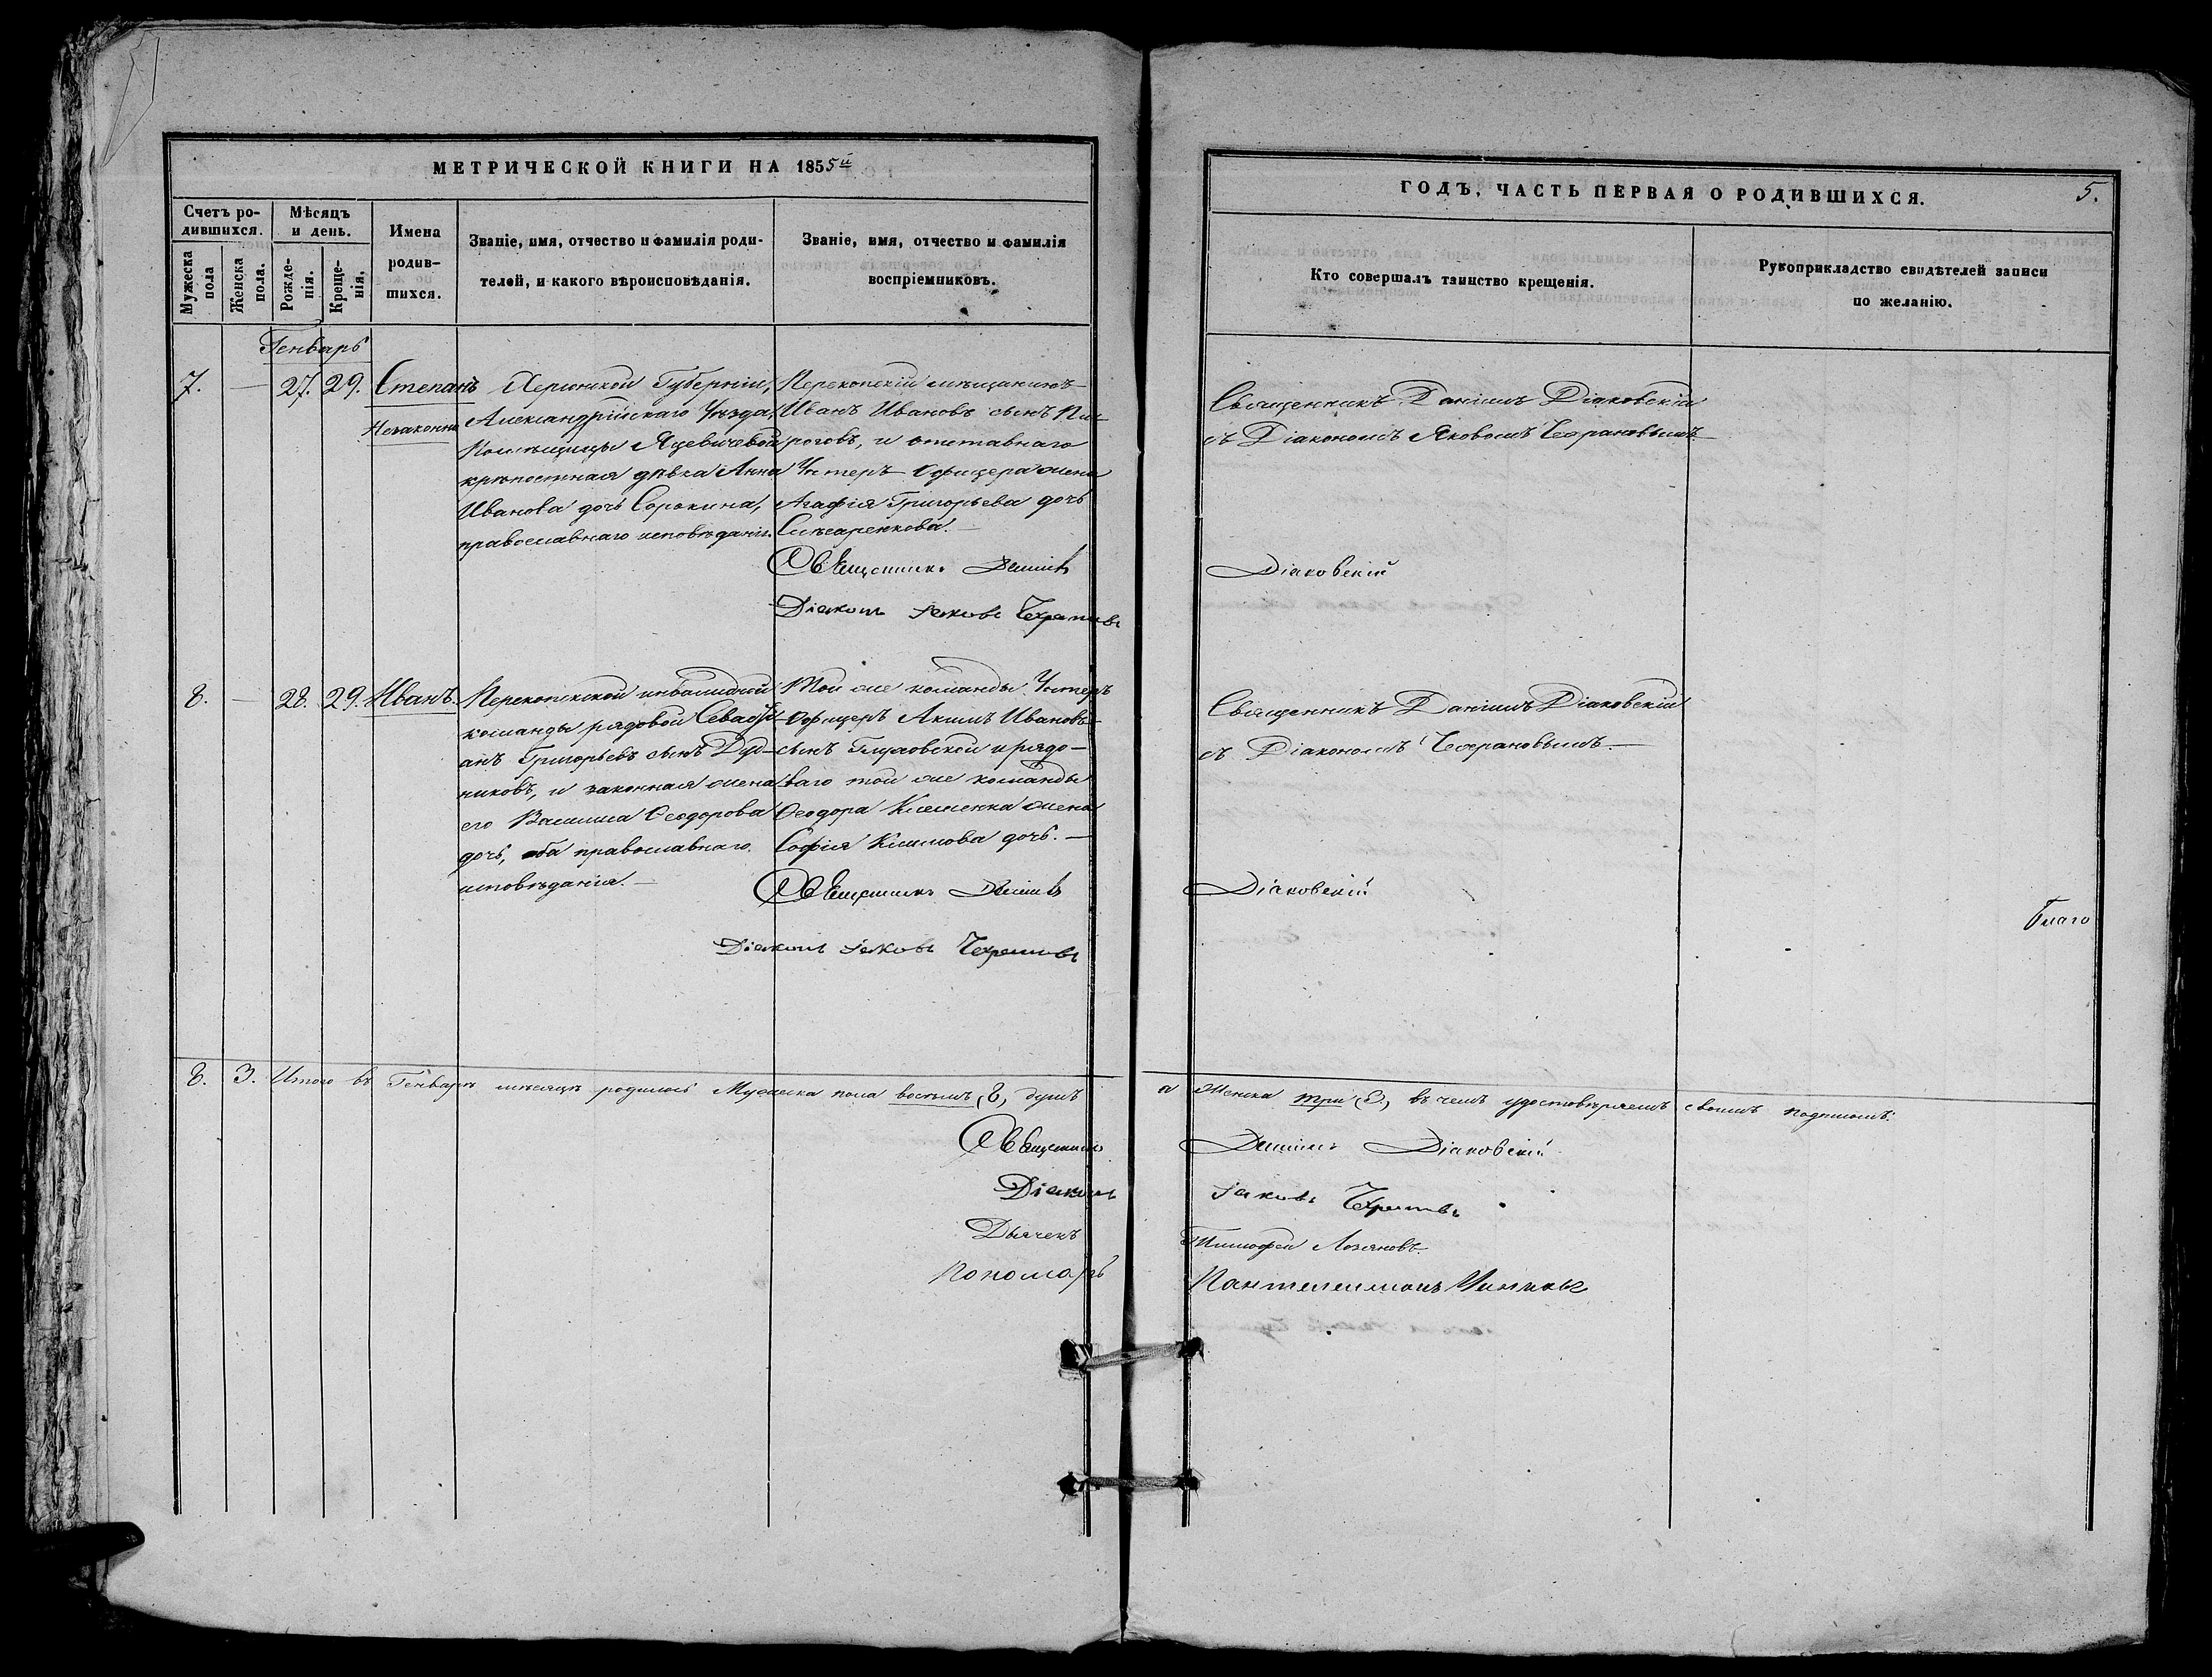 МЕТРИЧЕСКОЙ КНИГИ НА 1855й
Счетъ ро-
дившихся.
Мѣсяцъ
и день.
Мужеска пола
Женска пола.
Рожденія.
Крещенія.
Имена
родив-
шихся.
Званіе, имя, отчество и фамилія роди-
телей, и какого вѣроисповѣданія.
Званіе, имя, отчество и фамилія
воспріемниковъ.
Генварь
7. — 27. 29. Степанъ
Незаконн.
Херсонской Губерніи,
Александрійскаго Уѣзда,
Помѣщицы Яцевичевой
крѣпостная дѣвка Анна
Иванова дочь Сорокина,
православнаго исповѣданія.
Перекопскій мѣщанинъ
Иванъ Ивановъ сынъ Пи-
роговъ, и отставнаго
Унтеръ-Офицера жена
Агафія Григорьева дочь
Слѣсаренкова. —
Священникъ Даніилъ
Діаконъ Іаковъ
8. — 28. 29. Иванъ.
Перекопской инвалидной
команды рядовой Севасті-
анъ Григорьевъ сынъ Дуд-
никовъ, и законная жена
его Василиса Ѳеодорова
дочь, оба православнаго
исповѣданія. —
Той же команды Унтеръ
-Офицеръ Акимъ Ивановъ
сынъ и рядо-
ваго той же команды
Ѳеодора Клименка жена
Софія Климова дочь. —
Священникъ Даніилъ
Діаконъ Іаковъ
8. 3. Итого въ Генварѣ мѣсяцѣ родилось Мужеска пола восемь (8) душъ
Священникъ
Діаконъ
Дьячекъ
Пономарь
ГОДЪ, ЧАСТЬ ПЕРВАЯ О РОДИВШИХСЯ.
5.
Кто совершалъ таинство крещенія.
Рукоприкладство свидѣтелей записи
по желанію.
Священникъ Даніилъ Діаковскій
съ Діакономъ Яковомъ
Діаковскій
Священникъ Даніилъ Діаковскій
съ Діакономъ
Діаковскій
Благо
и Женска три (3,) въ чемъ удостовѣряемъ своимъ подписомъ:
Даніилъ Діаковскій
Іаковъ
Тимофей Лозановъ.
Пантелеимонъ